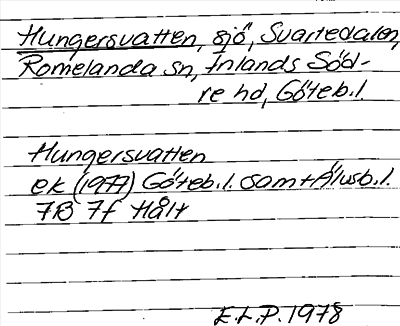 Hungersvatten, sjö, Svartedalen,
Romelanda sn, Inlands Söd-
re hd, Göteb.l.
Hungersvatten
ek (1977) Göteb.l. samt Älvsb.l.
7B 7f Hålt
E.L.P. 1978